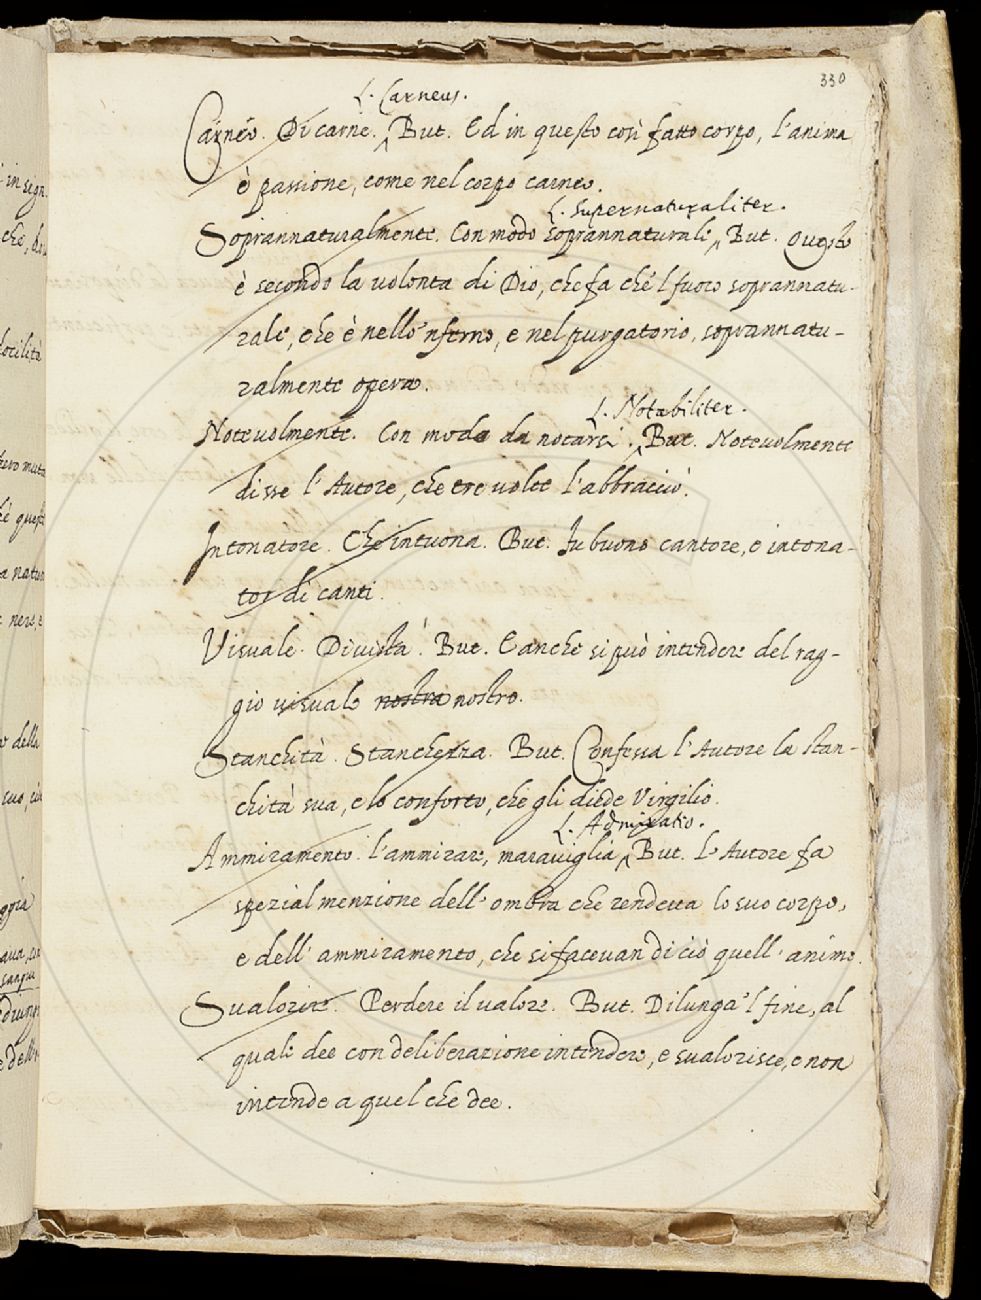 330
L. Carneus.
Carneo. Di carne. But. Ed in questo così fatto corpo, l'anima
è passione, come nel corpo carneo.
L. Supernaturaliter.
Soprannaturalmente. Con modo soprannaturale, But. Questo
è secondo la volonta di Dio, che fa che 'l fuoco soprannatu-
rale, che è nello 'nferno, e nel purgatorio, soprannatu-
ralmente opera.
L. Notabiliter.
Notevolmente. Con modo da notarsi. But. Notevolmente
disse l'Autore, che tre volte l'abbracciò.
Intonatore. Che intuona. But. Fu buono cantore, e intona-
tor di canti.
Visuale. Di vista. But. E anche si può intendere del rag-
gio visuale nostra nostro.
Stanchità. Stanchezza. But. Confessa l'Autore la stan-
chità sua, e lo conforto, che gli diede Virgilio.
L. Admiratio.
Ammiramento. l'ammirare, maraviglia, But. L'Autore fa
spezial menzione dell'ombra che rendeva lo suo corpo,
e dell'ammiramento, che si facevan di ciò quell'anime.
Svalorire. Perdere il valore. But. Dilunga 'l fine, al
quale dee con deliberazione intendere, e svalorisce, e non
intende a quel che dee.